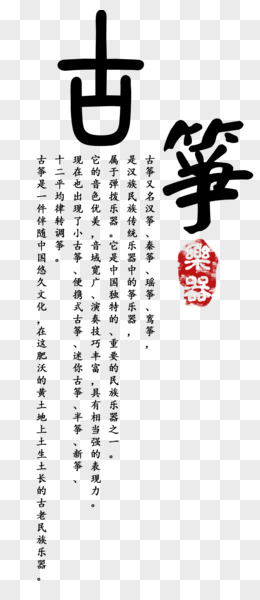 古筝
樂器
古筝又名汉筝、秦筝、瑶筝、鸾筝，
是汉族民族传统乐器中的筝乐器，
属于弹拨乐器。它是中国独特的、重要的民族乐器之一。
它的音色优美，音域宽广、演奏技巧丰富，具有相当强的表现力。
现在也出现了小古筝、便携式古筝、迷你古筝、半筝、新筝、
十二平均律转调筝。
古筝是一件伴随中国悠久文化，在这肥沃的黄土地上土生土长的古老民族乐器。